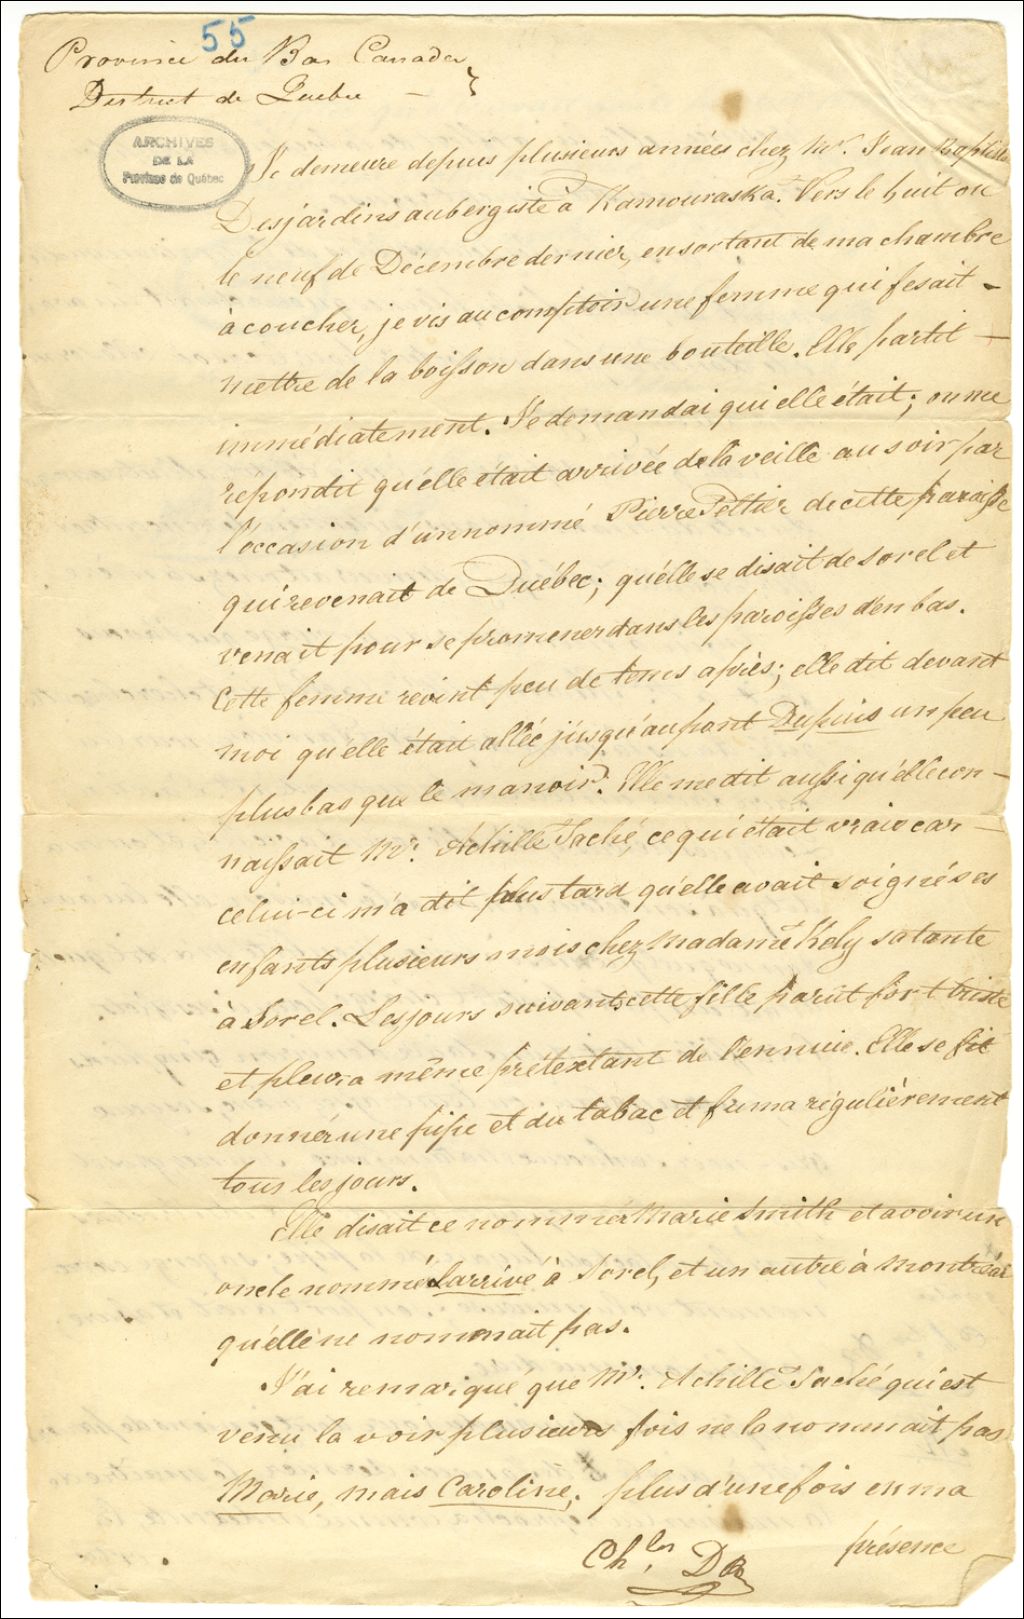 55
Province du Bas Canada
District de Quebec — }
ARCHIVES
DE LA
Province de Québec
Je demeure depuis plusieurs années chez Mr. Jean Baptiste
Desjardins aubergiste à Kamouraska. Vers le huit ou
le neuf de Décembre dernier, en sortant de ma chambre
à coucher, je vis au comptoir une femme qui fesait -
mettre de la boisson dans une bouteille. Elle partit —
immédiatement. Je demandai qui elle était; on me
répondit qu'elle était arrivée de la veille au soir par
l'occasion d'un nommé Pierre Peltier de cette paroisse
qui revenait de Québec; qu'elle se disait de Sorel et
venait pour se promener dans les paroisses d'en bas.
Cette femme revint peu de tems après; elle dit devant
moi qu'elle était allée jusqu'au pont Dupuis un peu
plus bas que le manoir. Elle me dit aussi qu'elle con-
naissait Mr. Achille Taché, ce qui était vrai car —
celui-ci m'a dit plus tard qu'elle avait soigné ses
enfants plusieurs mois chez Madame Kely sa tante
à Sorel. Les jours suivants cette fille parut fort triste
et pleura même prétextant de l'ennuie. Elle se fit
donner une pipe et du tabac et fuma régulièrement
tous les jours.
Elle disait ce nommer Marie Smith et avoir un
oncle nommé Larrivé à Sorel, et un autre à Montréal
qu'elle ne nommait pas.
J'ai remarqué que Mr. Achille Taché qui est
venu la voir plusieurs fois ne la nommait pas
Marie, mais Caroline; plus d'une fois en ma
présence
Ch.les